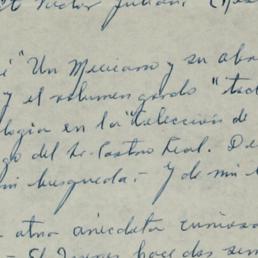 Victor Juliani
" Un Mexicano y su
y el volumen gordo "
en la "Selección de
del Sr. Castro Leal. De
mi busqueda.- Y de mi
otra anécdota curiosa
- El Jueves hace dos